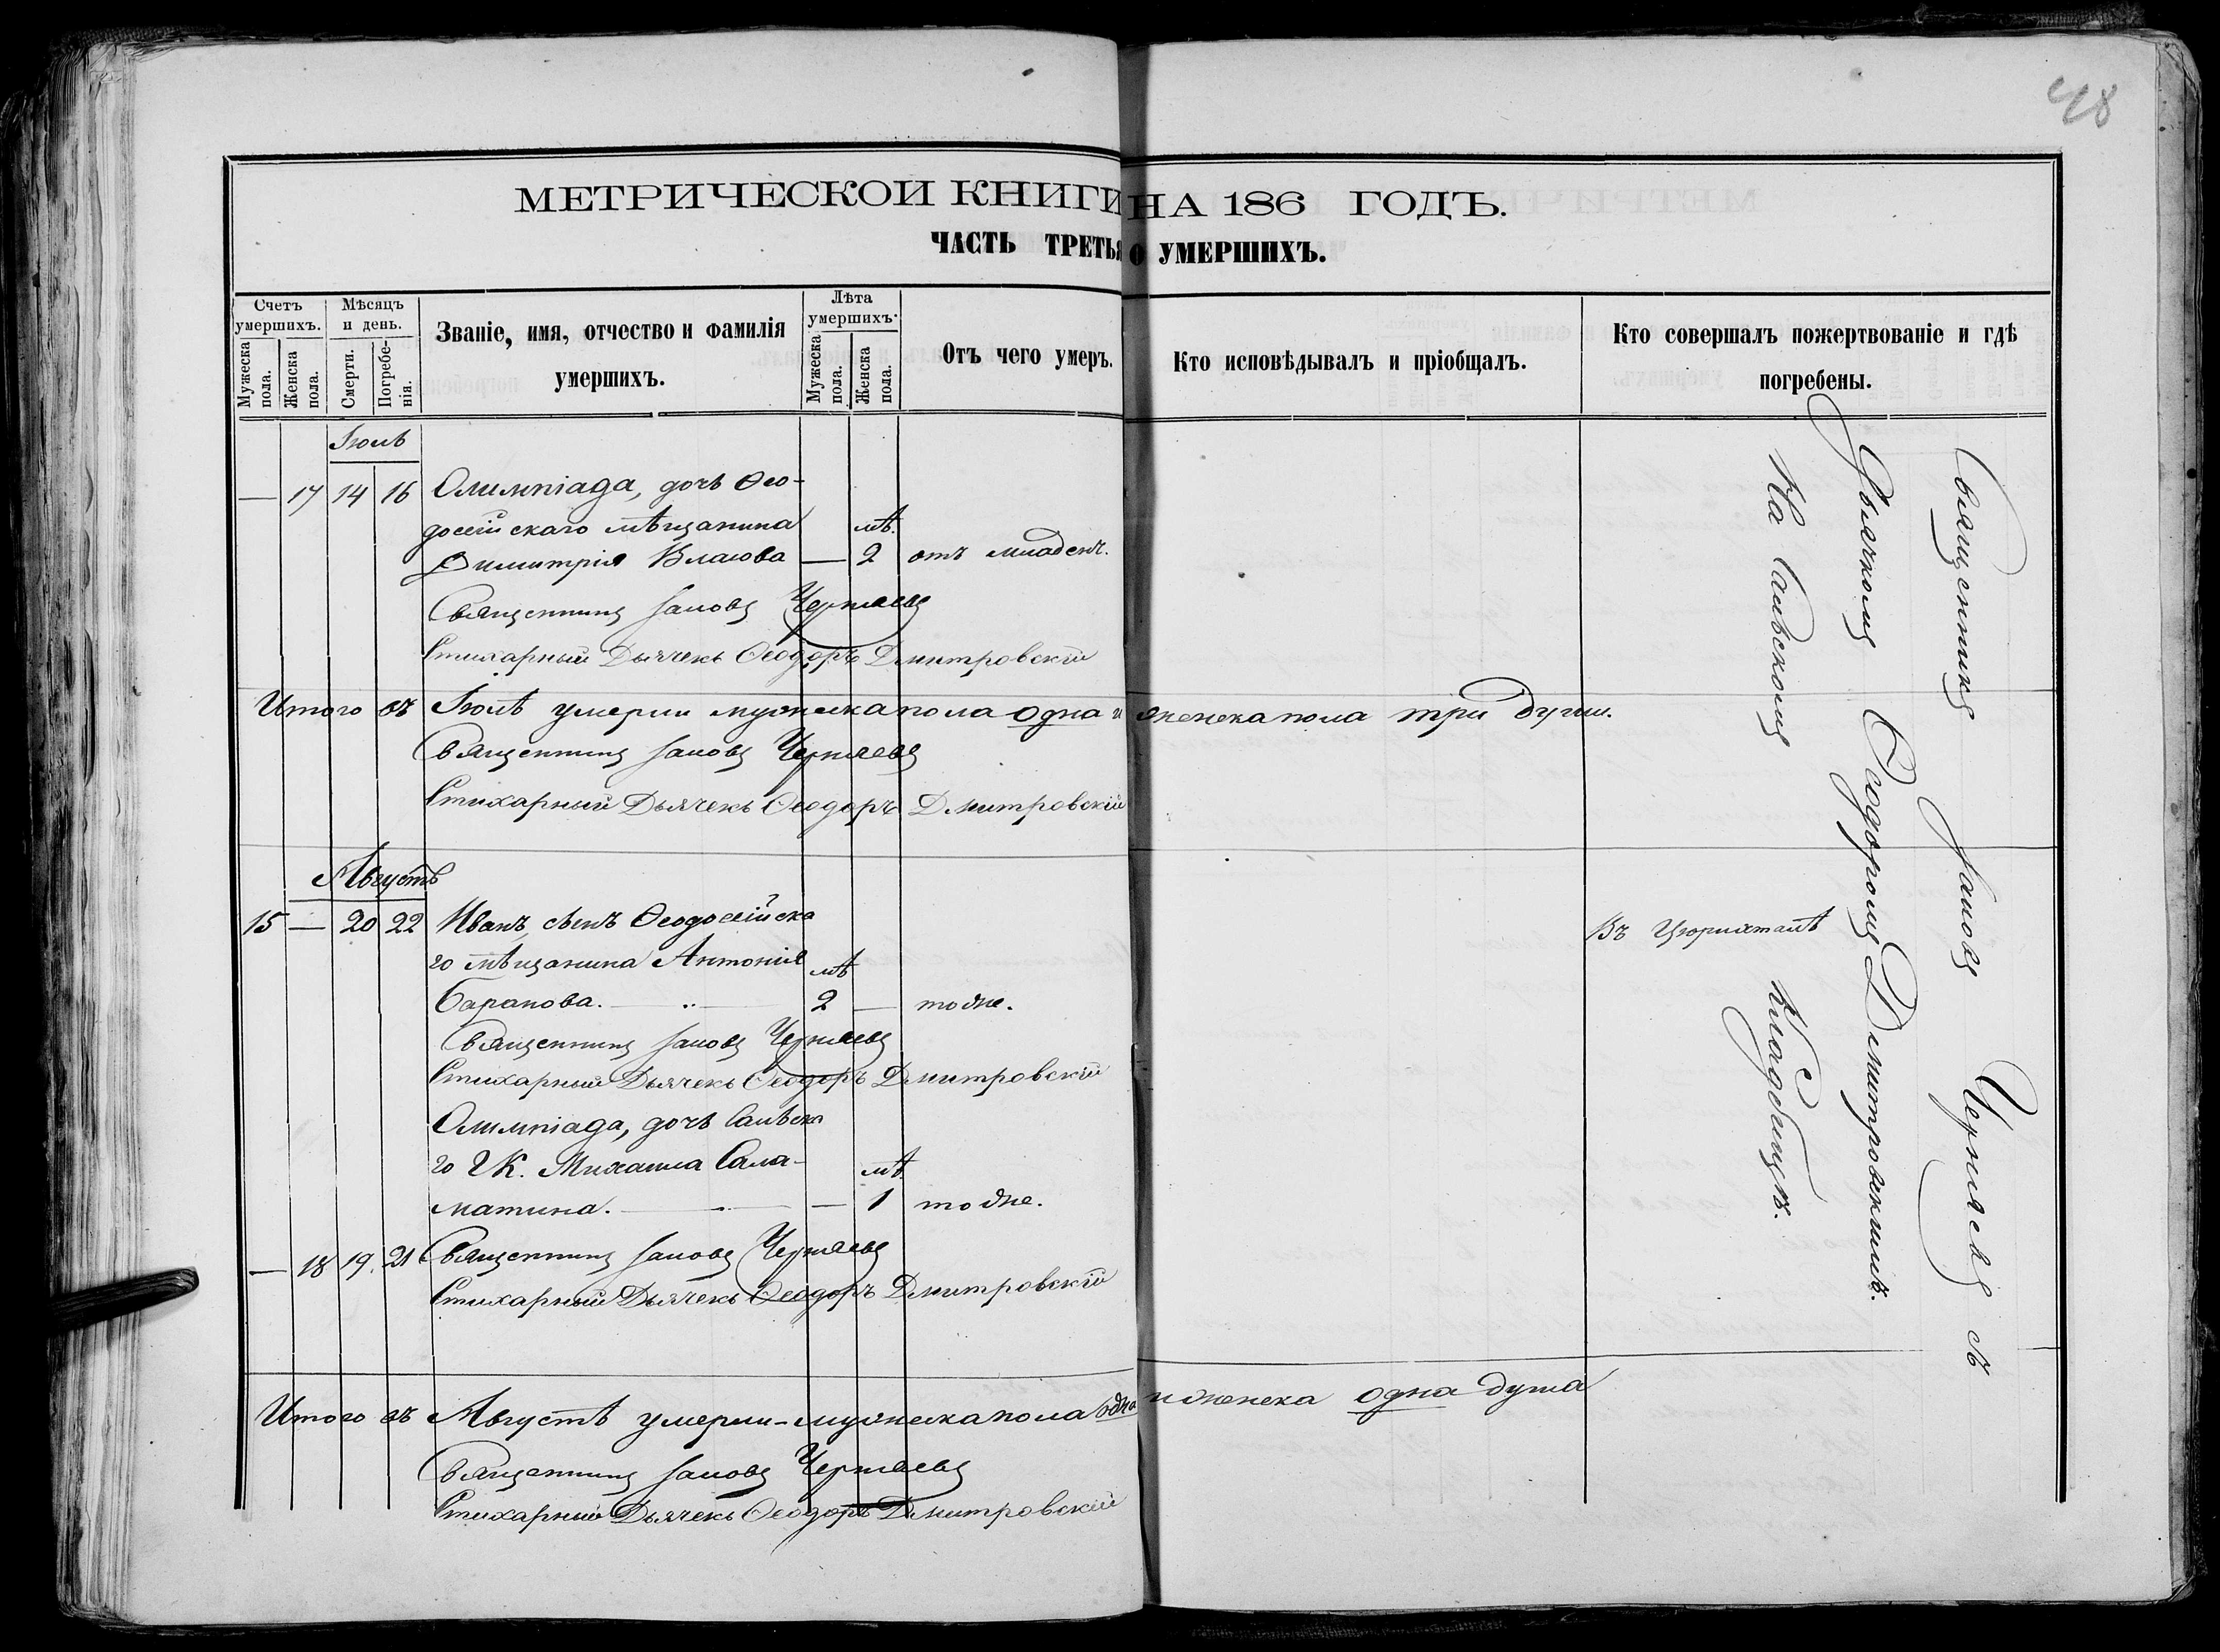 48
МЕТРИЧЕСКОЙ КНИГИ НА 186 ГОДЪ.
ЧАСТЬ ТРЕТЬЯ О УМЕРШИХЪ.
Счетъ умершихъ.
Мужеска пола.
Женска пола.
Мѣсяцъ и день.
Смерти.
Погребенія.
Званіе, имя, отчество и фамилія умершихъ.
Лѣта умершихъ.
Мужеска пола.
Женска пола.
Отъ чего умеръ.
Кто исповѣдывалъ и пріобщалъ.
Кто совершалъ пожертвованіе и гдѣ погребены.
Іюль
— 17 14 16 Олимпіада, дочь Ѳео-
досейскаго мѣщанина лѣ.
Димитрія Власова — 2 отъ младенч.
Священникъ Іаковъ Черняевъ
Стихарный Дьячекъ Ѳеодоръ Дмитровскій
Итого въ Іюлѣ умерли мужеска пола одна и женска пола три души.
Священникъ Іаковъ Черняевъ
Стихарный Дьячекъ Ѳеодоръ Дмитровскій
Августъ
15 — 20 22 Иванъ, сынъ Ѳеодосійска
го мѣщанина Антонія лѣ
Баранова. 2 — тоже.
Въ Цюрихталѣ
Священникъ Іаковъ Черняевъ
Стихарный Дьячекъ Ѳеодоръ Дмитровскій
Олимпіада, дочь Салѣска
го Г.К. Михаила Сала- лѣ.
матина. — 1 тоже.
— 18 19. 21 Священникъ Іаковъ Черняевъ
Стихарный Дьячекъ Ѳеодоръ Дмитровскій
Итого въ Августѣ умерли - мужеска пола одна и женска одна душа
Священникъ Іаковъ Черняевъ
Стихарный Дьячекъ Ѳеодоръ Дмитровскій
Священникъ Іаковъ Черняевъ съ
Дьячкомъ Ѳеодоромъ Дмитровскимъ.
На Салѣскомъ Кладбищѣ.